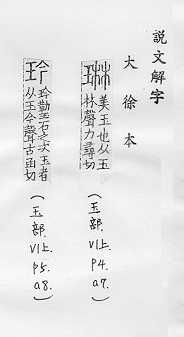 說文解字
大徐本
琳
美玉也从玉
林聲力尋切
(玉部.
VI上.
p4.
a7.)
玪
玪石之次玉者
从玉今聲古函切
(玉部.
VI上.
p5.
a8.)